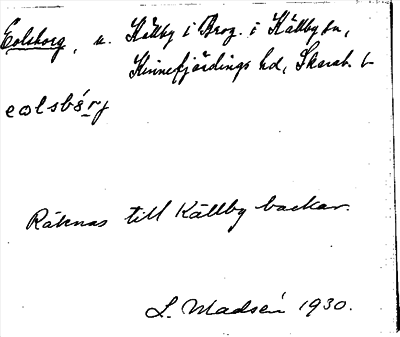 Eolsborg, u. Källby i Broz. i Källby sn,
Kinnefjärdings hd, Skarab. l.
eolsbǿrj
Räknas till Källby backar.
L. Madsén 1930.